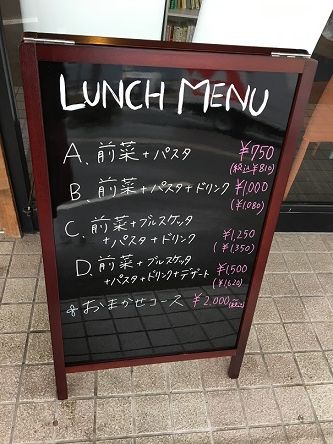 LUNCH MENU
A. 前菜+パスタ ¥750
(税込¥810)
B. 前菜+パスタ+ドリンク ¥1,000
(¥1,080)
C. 前菜+ブルスケッタ
+パスタ+ドリンク ¥1,250
(¥1,350)
D. 前菜+ブルスケッタ
+パスタ+ドリンク+デザート ¥1,500
(¥1,620)
おまかせコース ¥2,000